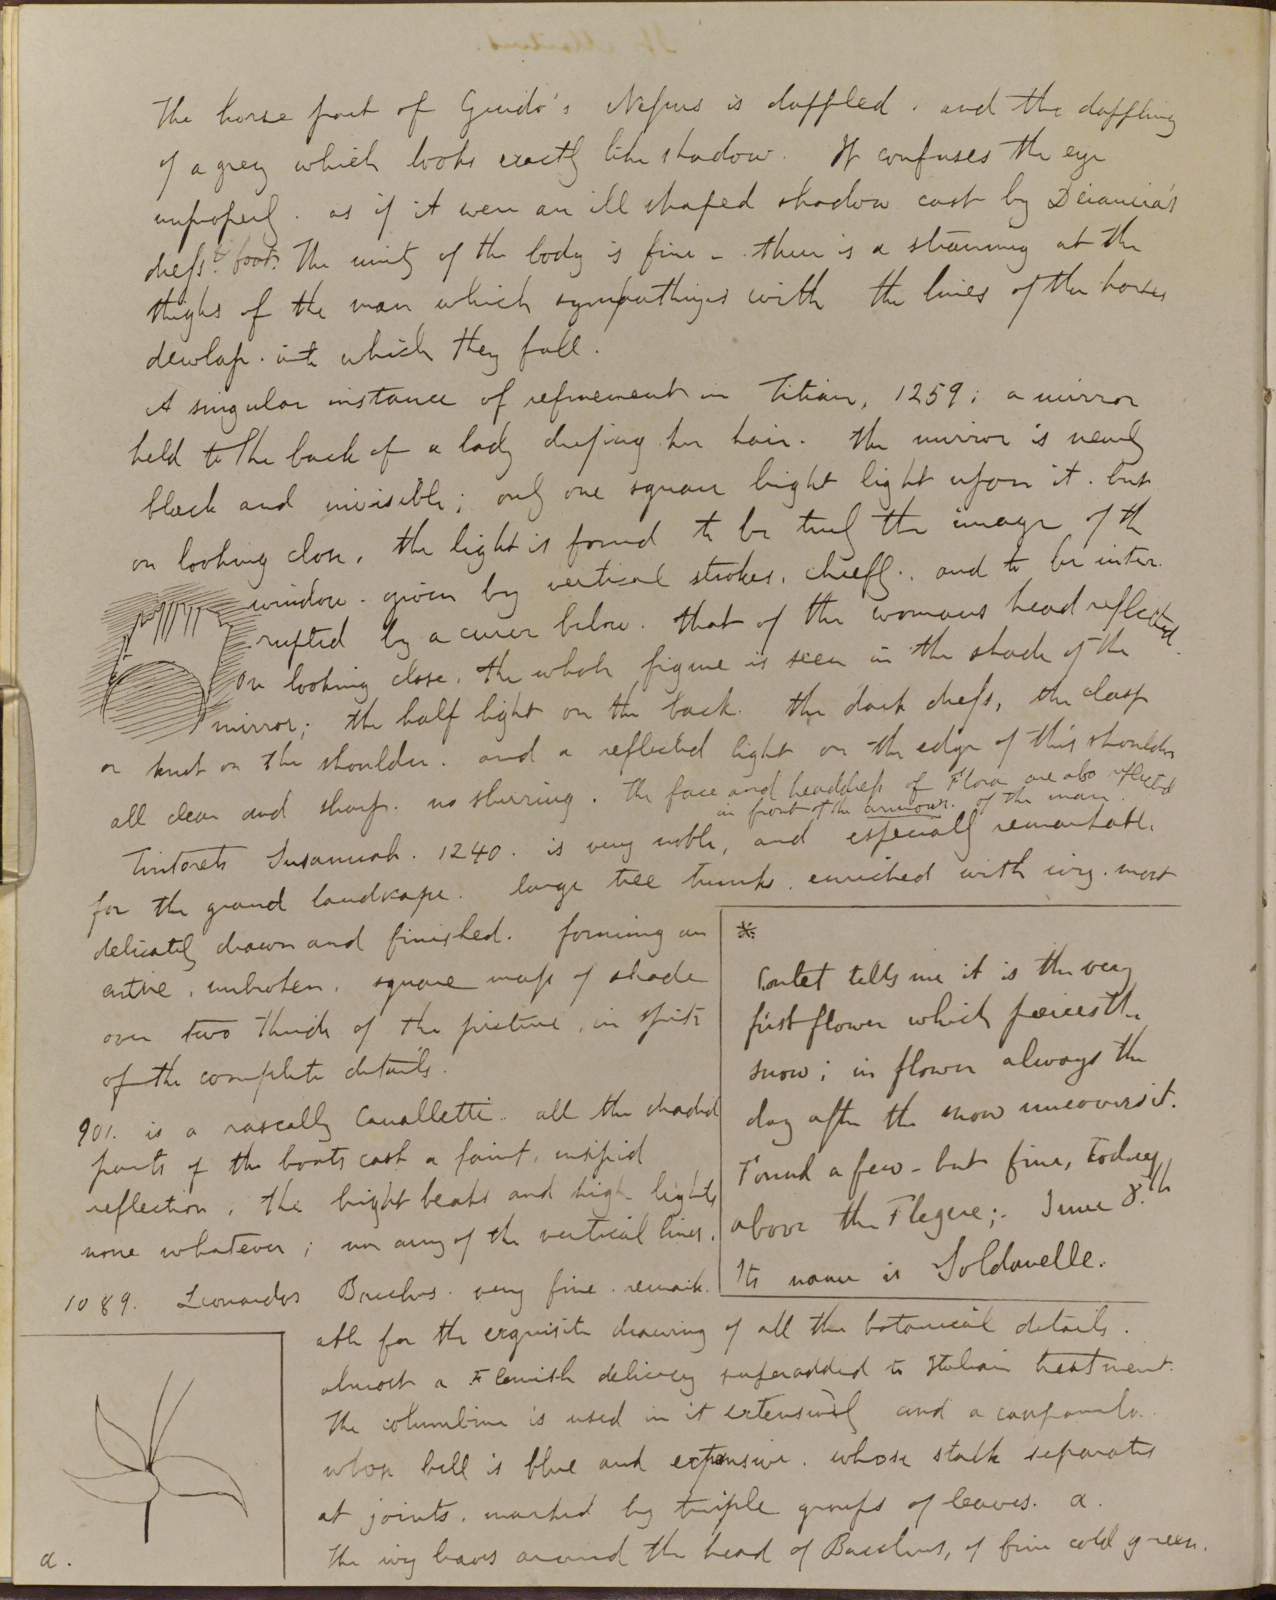 The horse part of Guido's Nessus is dappled. and the dappling
of a grey which looks exactly like shadow. It confuses the eye
improperly. as if it were an ill shaped shadow cast by Deianeira's
dress? foot? The unity of the body is fine - there is a straining at the
thighs of the man which sympathizes with the lines of the horses
dewlap. into which they fall.
A singular instance of refinement in Titian, 1259; a mirror
held to the back of a lady dressing her hair. the mirror is nearly
black and invisible; only one square bright light upon it. but
on looking close, the light is found to be truly the image of the
window. given by vertical strokes, chiefly, and to be inter
rupted by a curve below. that of the womans head reflected.
On looking close, the whole figure is seen in the shade of the
mirror; the half light on the back. the dark dress, the clasp
or knot on the shoulder. and a reflected light on the edge of this shoulder
all clear and sharp. no slurring. The face and headdress of Flora are also reflected
in front of the armour. of the man.
Tintorets Susannah. 1240. is very noble, and especially remarkable.
for the grand landscape. large tree trunks. enriched with ivy. most
delicately drawn and finished. forming an
entire, unbroken, square mass of shade
over two thirds of the picture, in spite
of the complete details.
901. is a rascally Canalletti. all the shaded
parts of the boats cast a faint, insipid
reflection, the bright beaks and high lights
none whatever; nor any of the vertical lines.
1089. Leonardos Bacchus. very fine. remark.
able for the exquisite drawing of all the botanical details.
almost a Flemish delicacy superadded to Italian treatment.
The columbine is used in it extensively and a campanula.
whose bell is blue and expansive. whose stalk separates
at joints. marked by triple groups of leaves. a.
the ivy leaves around the head of Bacchus, of fine cold green.
*
Coutet tells me it is the very
first flower which pierces the
snow; in flower always the
day after the snow uncovers it.
Found a few - but fine, today
above the Flegere;. June 8.th
Its name is Soldanelle.
a.